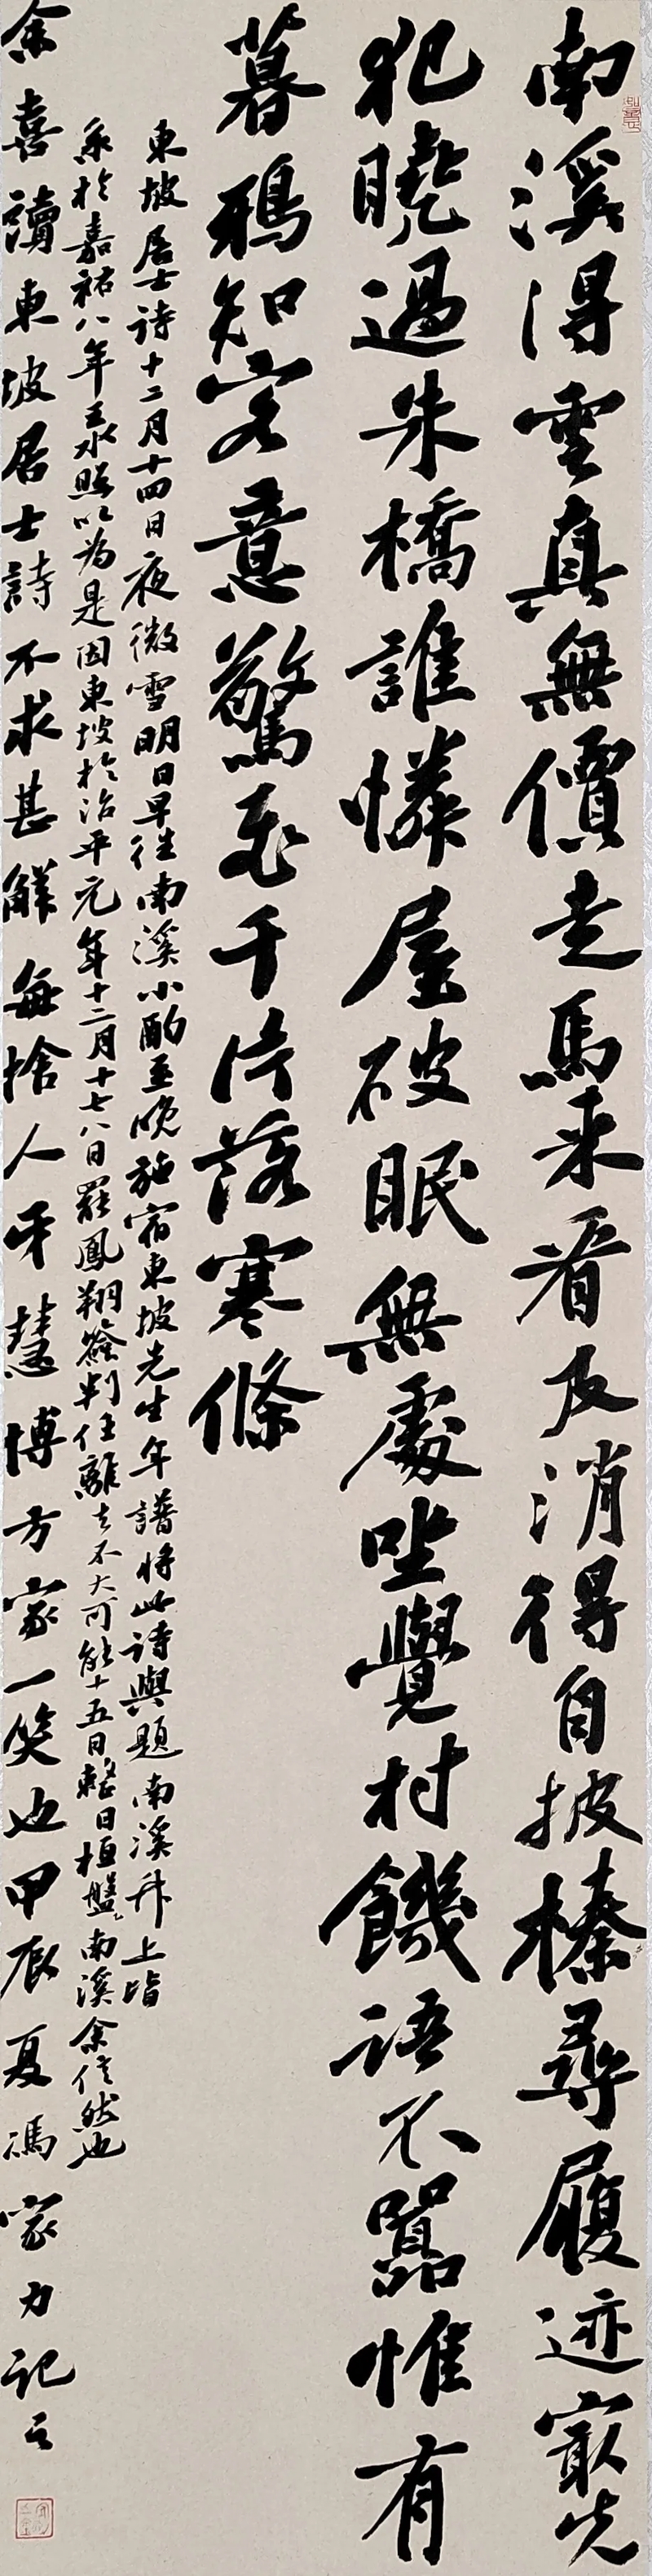 南溪得雪真無價走馬来看及消得自披榛尋履迹寂先
犯曉過朱橋誰憐屋破眠無處坐覺村饑語不囂惟有
暮鴉知客意驚飛千片落寒條
東坡居士诗十二月十四日夜微雪明日早往南溪小酌至晚施宿東坡先生年譜將此诗與題南溪竹上皆
系於嘉祐八年王水照以為是因東坡於治平元年十二月十七八日罷鳳翔簽判任離去不大可能十五日整日桓盤南溪余信然也
余喜讀東坡居士詩不求甚解每拾人牙慧博方家一笑也甲辰夏馮家力記之